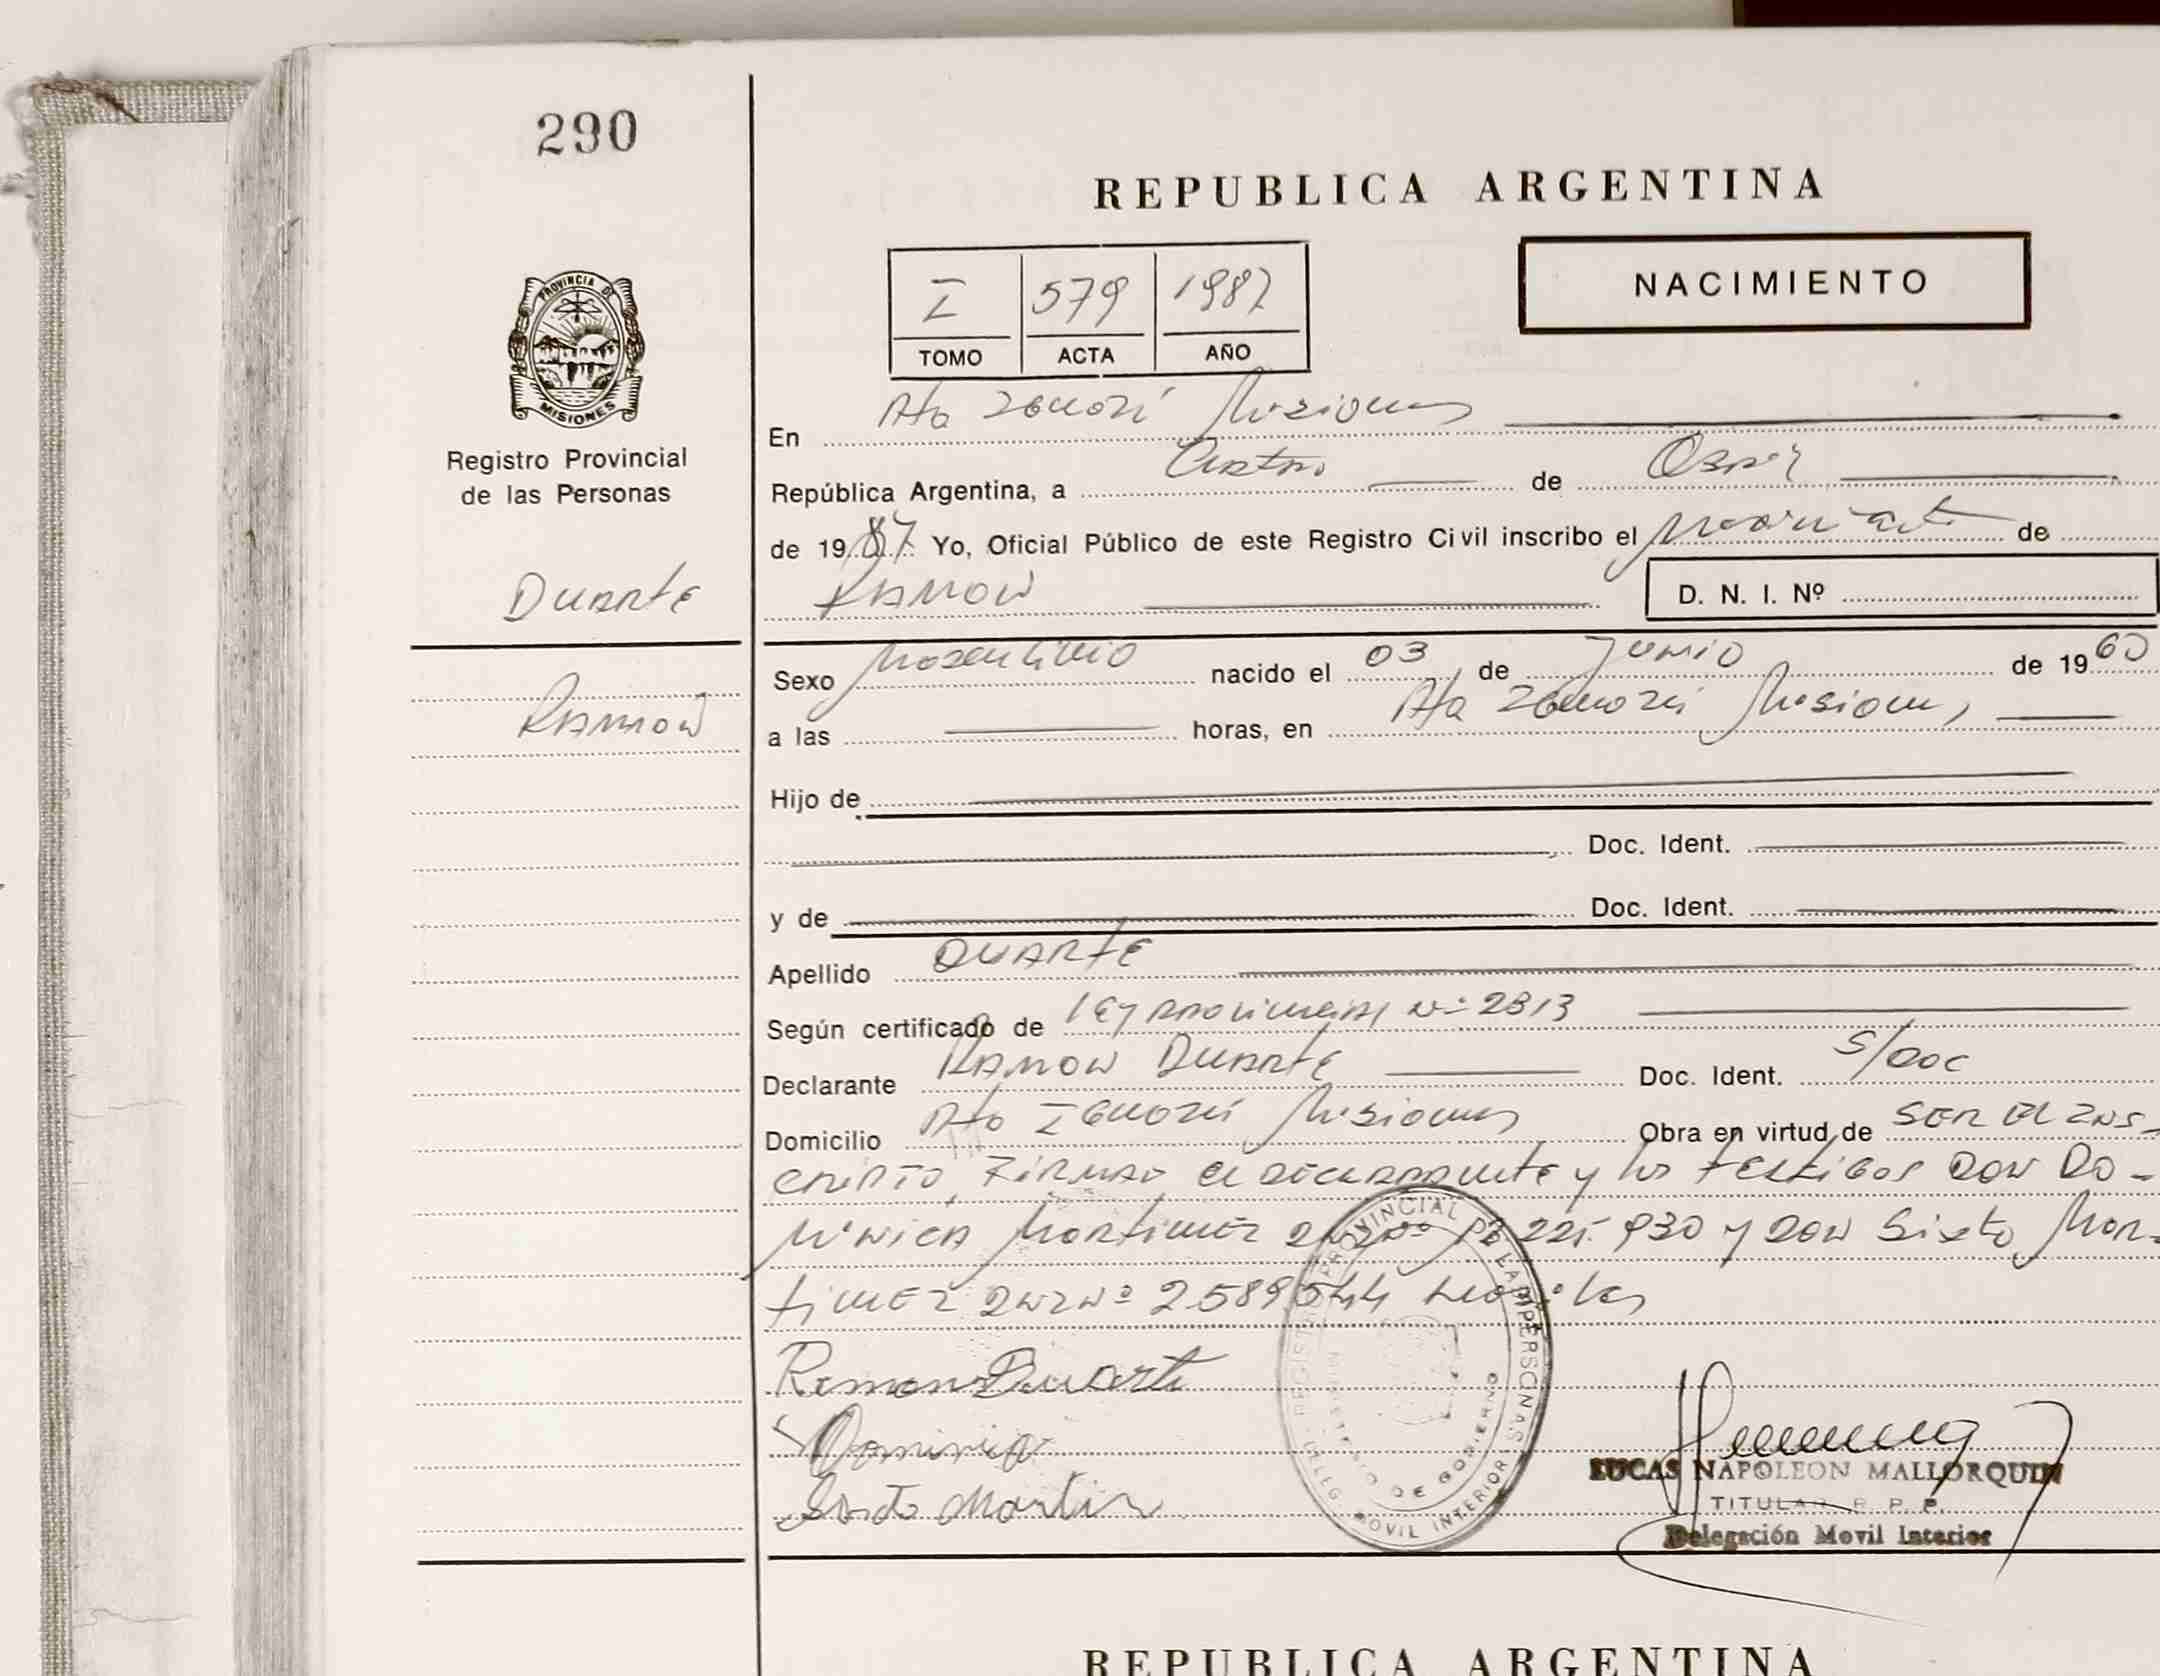 290
REPUBLICA ARGENTINA
NACIMIENTO
I 579 1987
TOMO ACTA AÑO
PROVINCIA DE
MISIONES
Registro Provincial
de las Personas
En Pto Misiones
República Argentina, a Cuatro de
de 1987. Yo, Oficial Público de este Registro Civil inscribo el de
Duarte
Ramon D. N. I. Nº
Sexo Masculino nacido el 03 de Junio de 1960
Ramon
a las horas, en Pto Misiones,
Hijo de
Doc. Ident.
y de Doc. Ident.
Apellido DUARTE
Según certificado de Ley Provincial Nº 2813
Declarante Ramon Duarte Doc. Ident. S/DOC
Domicilio Pto Misiones Obra en virtud de SER EL INS-
CRIPTO, FIRMAN el declarante y los testigos DON DO-
Martinez 225.930 y DON Sixto Mar-
tinez Nº 2589544
Ramon Duarte
Sixto Martin
REGISTRO PROVINCIAL DE LAS PERSONAS
MINISTERIO DE GOBIERNO
DELEG. MOVIL INTERIOR
LUCAS NAPOLEON MALLORQUIN
TITULAR R. P. P.
Delegación Movil Interior
REPUBLICA ARGENTINA